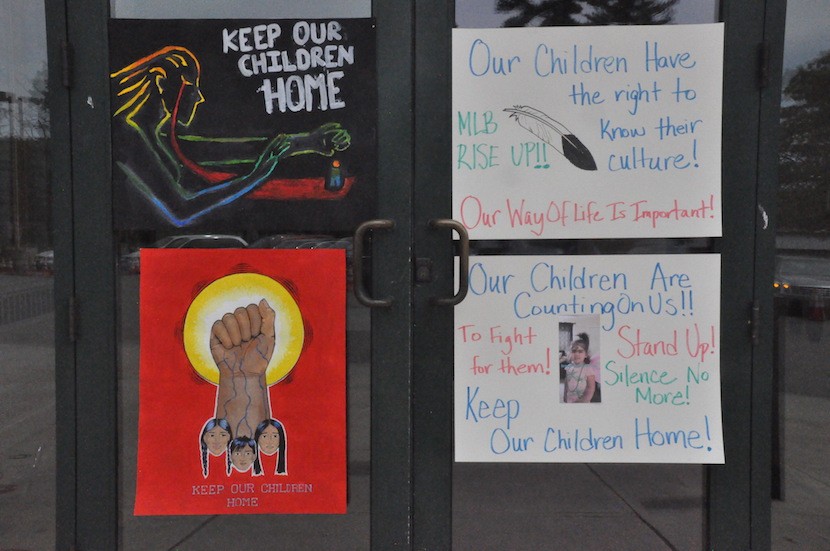 KEEP OUR
CHILDREN
HOME
Our Children Have
the right to
Know their
culture!
MLB
RISE UP!!
Our Way Of Life Is Important!
KEEP OUR CHILDREN
HOME
Our Children Are
Counting On Us!!
To Fight
for them!
Stand Up!
Silence No
More!
Keep
Our Children Home!